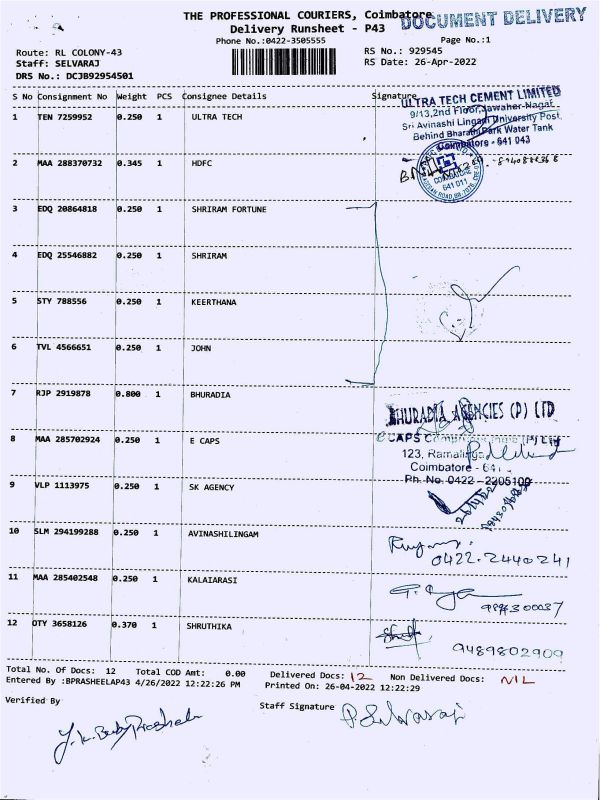 THE PROFESSIONAL COURIERS, Coimbatore
DOCUMENT DELIVERY
Delivery Runsheet - P43
Phone No.:0422-3505555
Page No.:1
Route: RL COLONY-43
RS No.: 929545
Staff: SELVARAJ
RS Date: 26-Apr-2022
DRS No.: DCJB92954501
S No Consignment No Weight PCS Consignee Details Signature
ULTRA TECH CEMENT LIMITED
1 TEN 7259952 0.250 1 ULTRA TECH
9/13,2nd Floor,Jawaher Nagar
Sri Avinashi Lingam University Post,
Behind Bharathi Park Water Tank
Coimbatore - 641 043
2 MAA 288370732 0.345 1 HDFC
COIMBATORE
641 011
3 EDQ 20864818 0.250 1 SHRIRAM FORTUNE
4 EDQ 25546882 0.250 1 SHRIRAM
5 STY 788556 0.250 1 KEERTHANA
6 TVL 4566651 0.250 1 JOHN
7 RJP 2919878 0.800 1 BHURADIA
BHURADIA AGENCIES (P) LTD
8 MAA 285702924 0.250 1 E CAPS
E CAPS (P) Ltd
123, Ramalinga
Coimbatore - 641
Ph. No. 0422 - 2205100
9 VLP 1113975 0.250 1 SK AGENCY
10 SLM 294199288 0.250 1 AVINASHILINGAM
0422.2440241
11 MAA 285402548 0.250 1 KALAIARASI
12 OTY 3658126 0.370 1 SHRUTHIKA
9489802909
Total No. Of Docs: 12 Total COD Amt: 0.00 Delivered Docs: 12 Non Delivered Docs: NIL
Entered By :BPRASHEELAP43 4/26/2022 12:22:26 PM Printed On: 26-04-2022 12:22:29
Verified By
Staff Signature